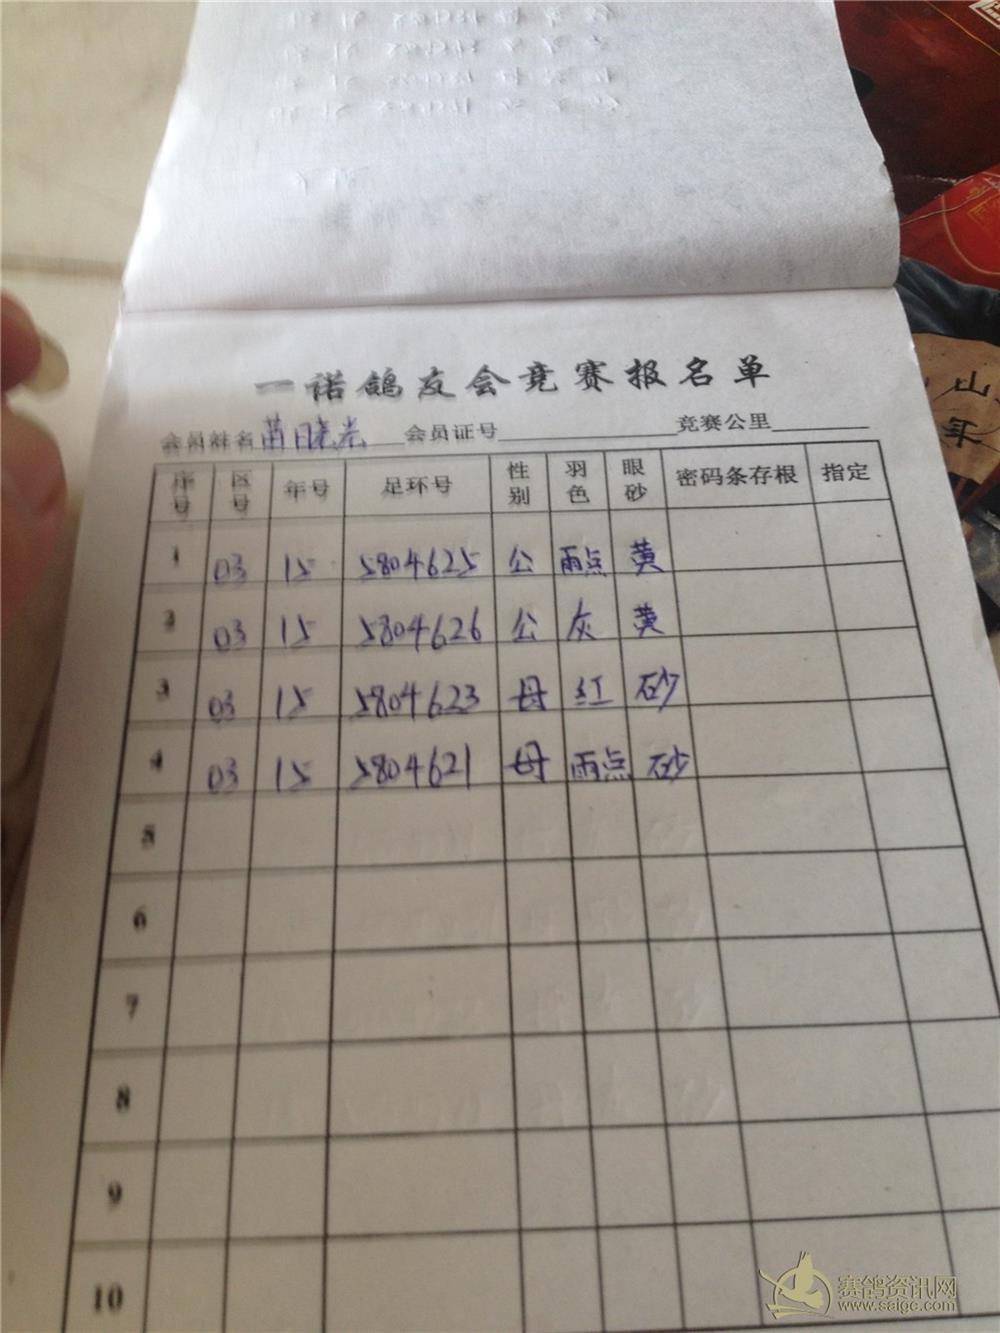 一诺鸽友会竞赛报名单
会员姓名 苗晓光 会员证号 竞赛公里
序号 区号 年号 足环号 性别 羽色 眼砂 密码条存根 指定
1 03 15 5804625 公 雨点 黄
2 03 15 5804626 公 灰 黄
3 03 15 5804623 母 红 砂
4 03 15 5804621 母 雨点 砂
5
6
7
8
9
10
山
年
赛鸽资讯网
www.saigc.com